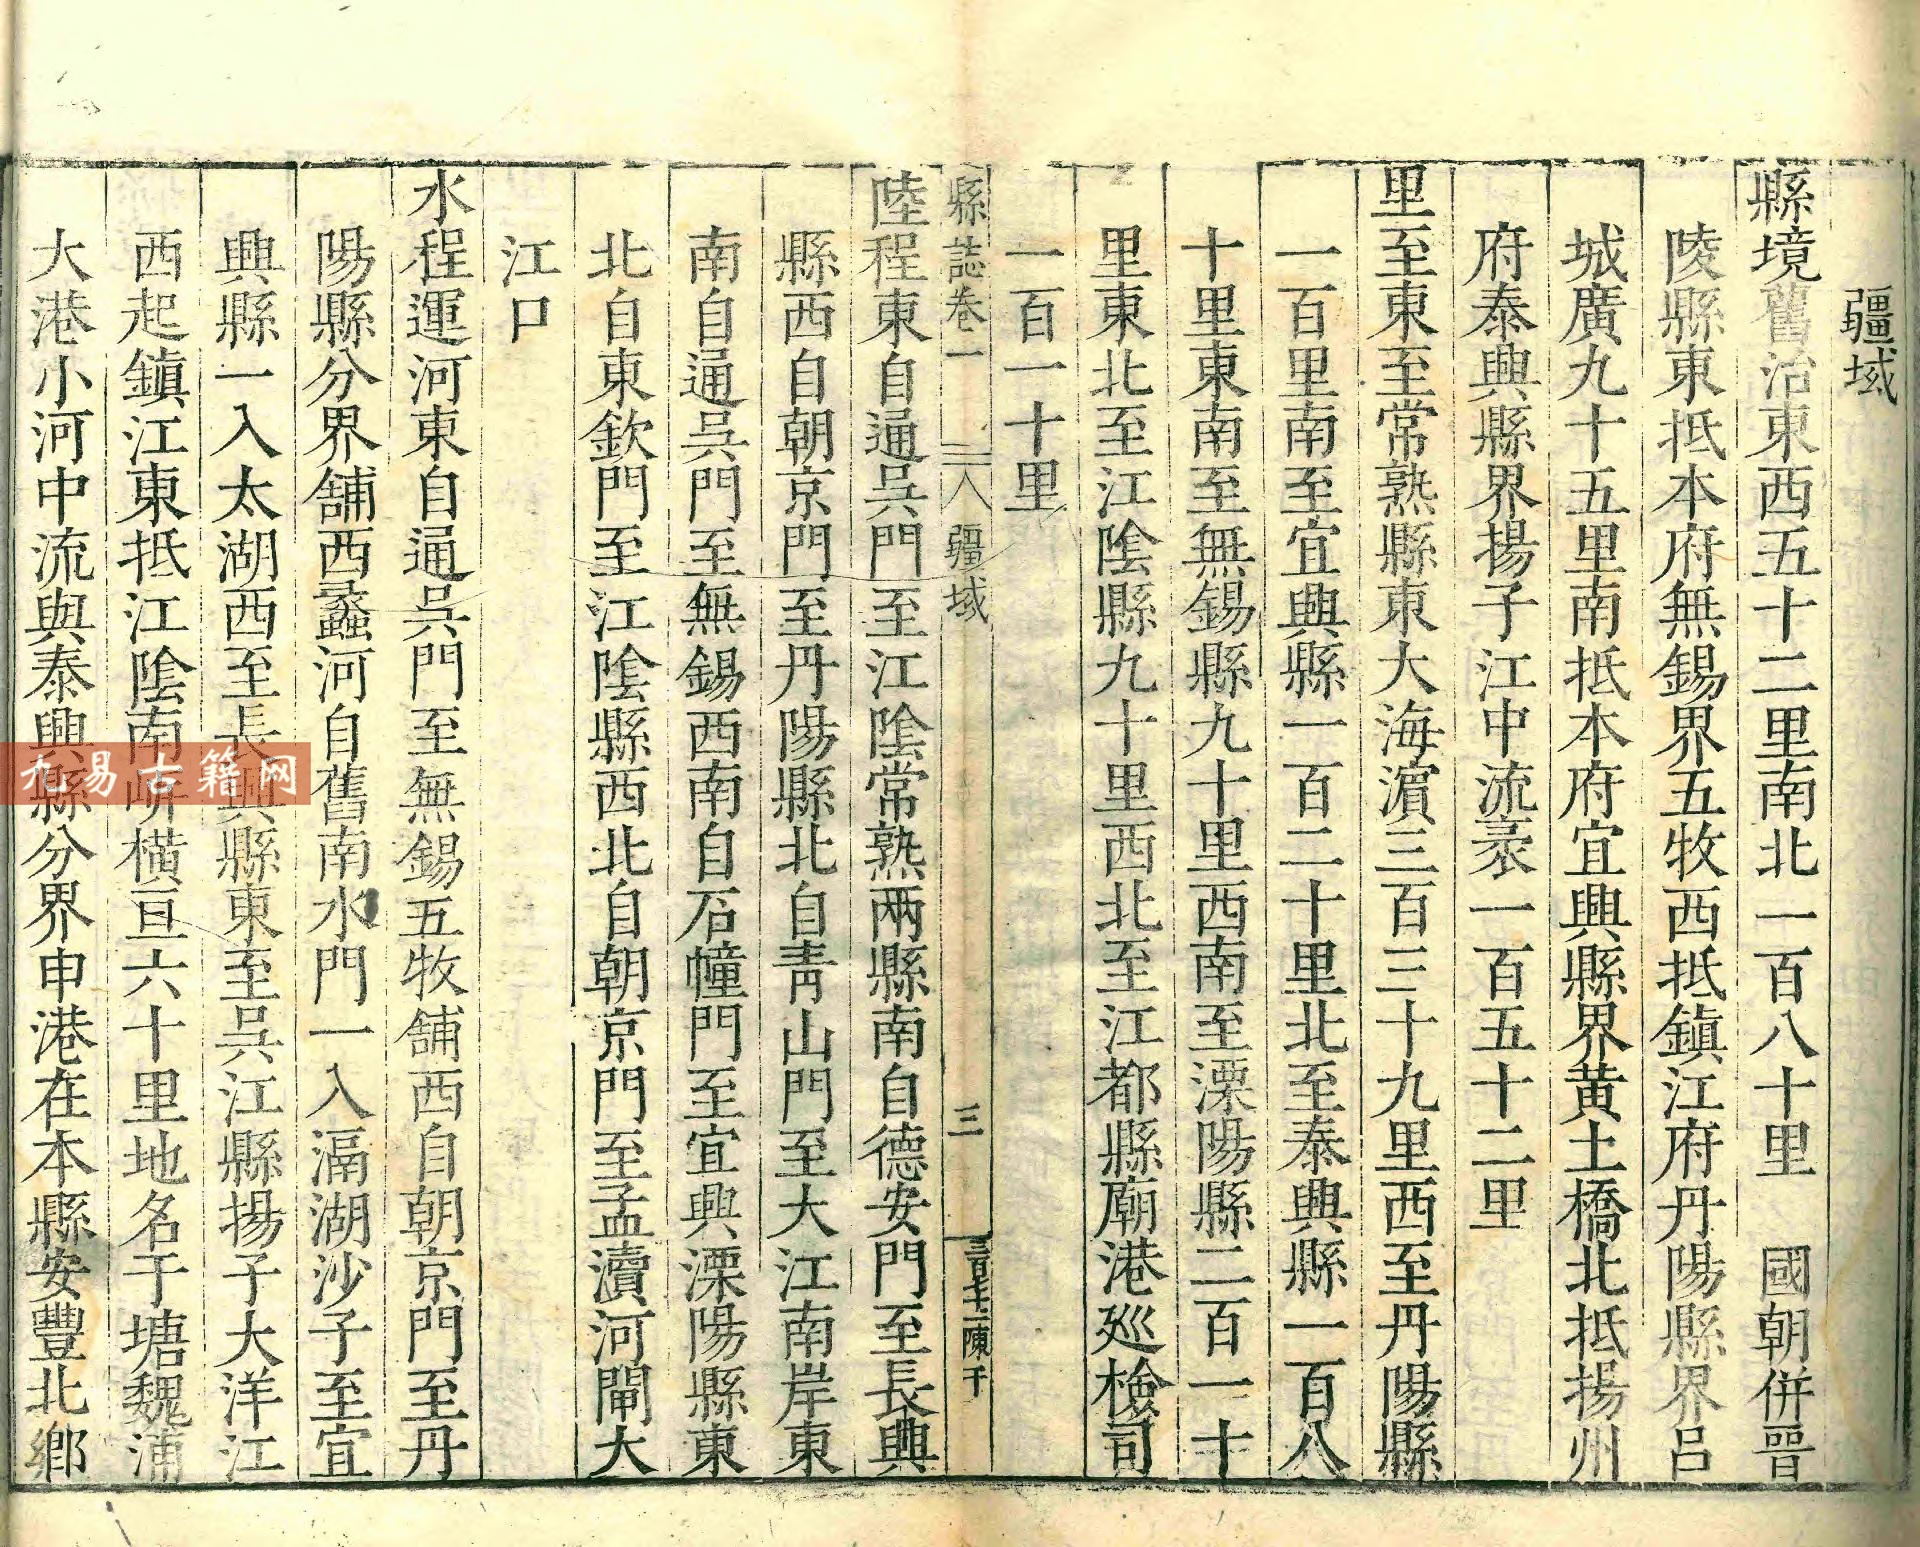 疆域
縣境舊治東西五十二里南北一百八十里　國朝併晉
陵縣東抵本府無錫界五牧西抵鎮江府丹陽縣界呂
城廣九十五里南抵本府宜興縣界黃土橋北抵揚州
府泰興縣界揚子江中流袤一百五十二里
里至東至常熟縣東大海濵三百三十九里西至丹陽縣
一百里南至宜興縣一百二十里北至泰興縣一百八
十里東南至無錫縣九十里西南至溧陽縣二百一十
里東北至江陰縣九十里西北至江都縣廟港廵檢司
一百一十里
縣誌卷一
疆域
三
三百七十二陳千
陸程東自通吳門至江陰常熟兩縣南自德安門至長興
縣西自朝京門至丹陽縣北自青山門至大江南岸東
南自通吳門至無錫西南自石幢門至宜興溧陽縣東
北自東欽門至江陰縣西北自朝京門至孟瀆河閘大
江口
水程運河東自通吳門至無錫五牧舖西自朝京門至丹
陽縣分界舖西蠡河自舊南水門一入滆湖沙子至宜
興縣一入太湖西至長興縣東至吳江縣揚子大洋江
西起鎮江東抵江陰南岍橫亘六十里地名于塘魏浦
大港小河中流與泰興縣分界申港在本縣安豐北鄉
九易古籍网